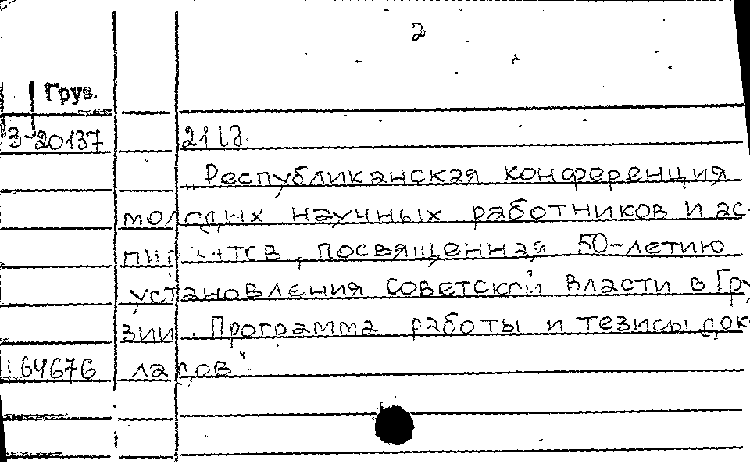 2
Груз.
3-20137
21 1 д.
„Республиканская конференция
молодых научных работников и ас-
пирантов, посвященная 50-летию
установления советской власти в Гру
зии. Программа работы и тезисы док-
164676 ладов"